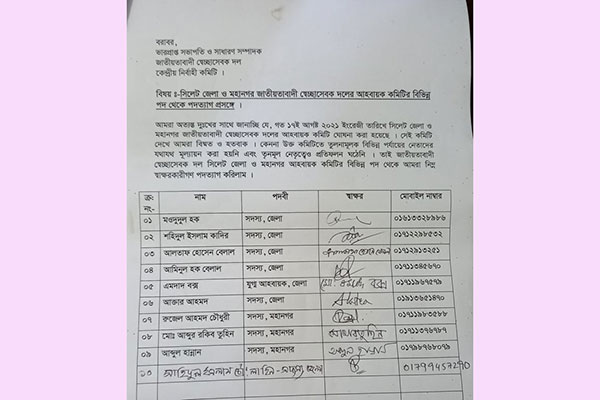 বরাবর,
ভারপ্রাপ্ত সভাপতি ও সাধারণ সম্পাদক
জাতীয়তাবাদী স্বেচ্ছাসেবক দল
কেন্দ্রীয় নির্বাহী কমিটি ।
বিষয় ঃ-সিলেট জেলা ও মহানগর জাতীয়তাবাদী স্বেচ্ছাসেবক দলের আহবায়ক কমিটির বিভিন্ন
পদ থেকে পদত্যাগ প্রসঙ্গে ।
আমরা অত্যন্ত দুঃখের সাথে জানাচ্ছি যে, গত ১৭ই আগষ্ট ২০২১ ইংরেজী তারিখে সিলেট জেলা ও
মহানগর জাতীয়তাবাদী স্বেচ্ছাসেবক দলের আহবায়ক কমিটি ঘোষনা করা হয়েছে । সেই কমিটি
দেখে আমরা বিস্মত ও হতবাক । কেননা উক্ত কমিটিতে তুলনামূলক বিভিন্ন পর্যায়ের নেতাদের
যথাযথ মূল্যায়ন করা হয়নি এবং তৃনমূল নেতৃত্বেও প্রতিফলন ঘটেনি । তাই জাতীয়তাবাদী
স্বেচ্ছাসেবক দল সিলেট জেলা ও মহানগর আহবায়ক কমিটির বিভিন্ন পদ থেকে আমরা নিম্ন
স্বাক্ষরকারীগণ পদত্যাগ করিলাম ।
ক্রঃ নং- নাম পদবী স্বাক্ষর মোবাইল নাম্বার
০১ মওদুদুল হক সদস্য, জেলা ০১৬১৩৩২৮৯৮৬
০২ শহিদুল ইসলাম কাদির সদস্য, জেলা ০১৭১২২৯৮৫৩২
০৩ আলতাফ হোসেন বেলাল সদস্য, জেলা ০১৭১২৯১৩২৫১
০৪ আমিনুল হক বেলাল সদস্য, জেলা ০১৭১১৩৪৫৬৭০
০৫ এমদাদ বক্স যুগ্ম আহবায়ক, জেলা ০১৭১১৯৬৭৫৭৯
০৬ আক্তার আহমদ সদস্য, জেলা ০১৯১৩৬৫১৪৭০
০৭ রুজেল আহমদ চৌধুরী সদস্য, মহানগর ০১৭১১৯৮৩৫৮৮
০৮ মোঃ আব্দুর রকিব তুহিন সদস্য, মহানগর ০১৭১১৩৭৬৭৮৭
০৯ আব্দুল হান্নান সদস্য, মহানগর ০১৭৯৮৭৬৮০৭৯
১০ 01799457290